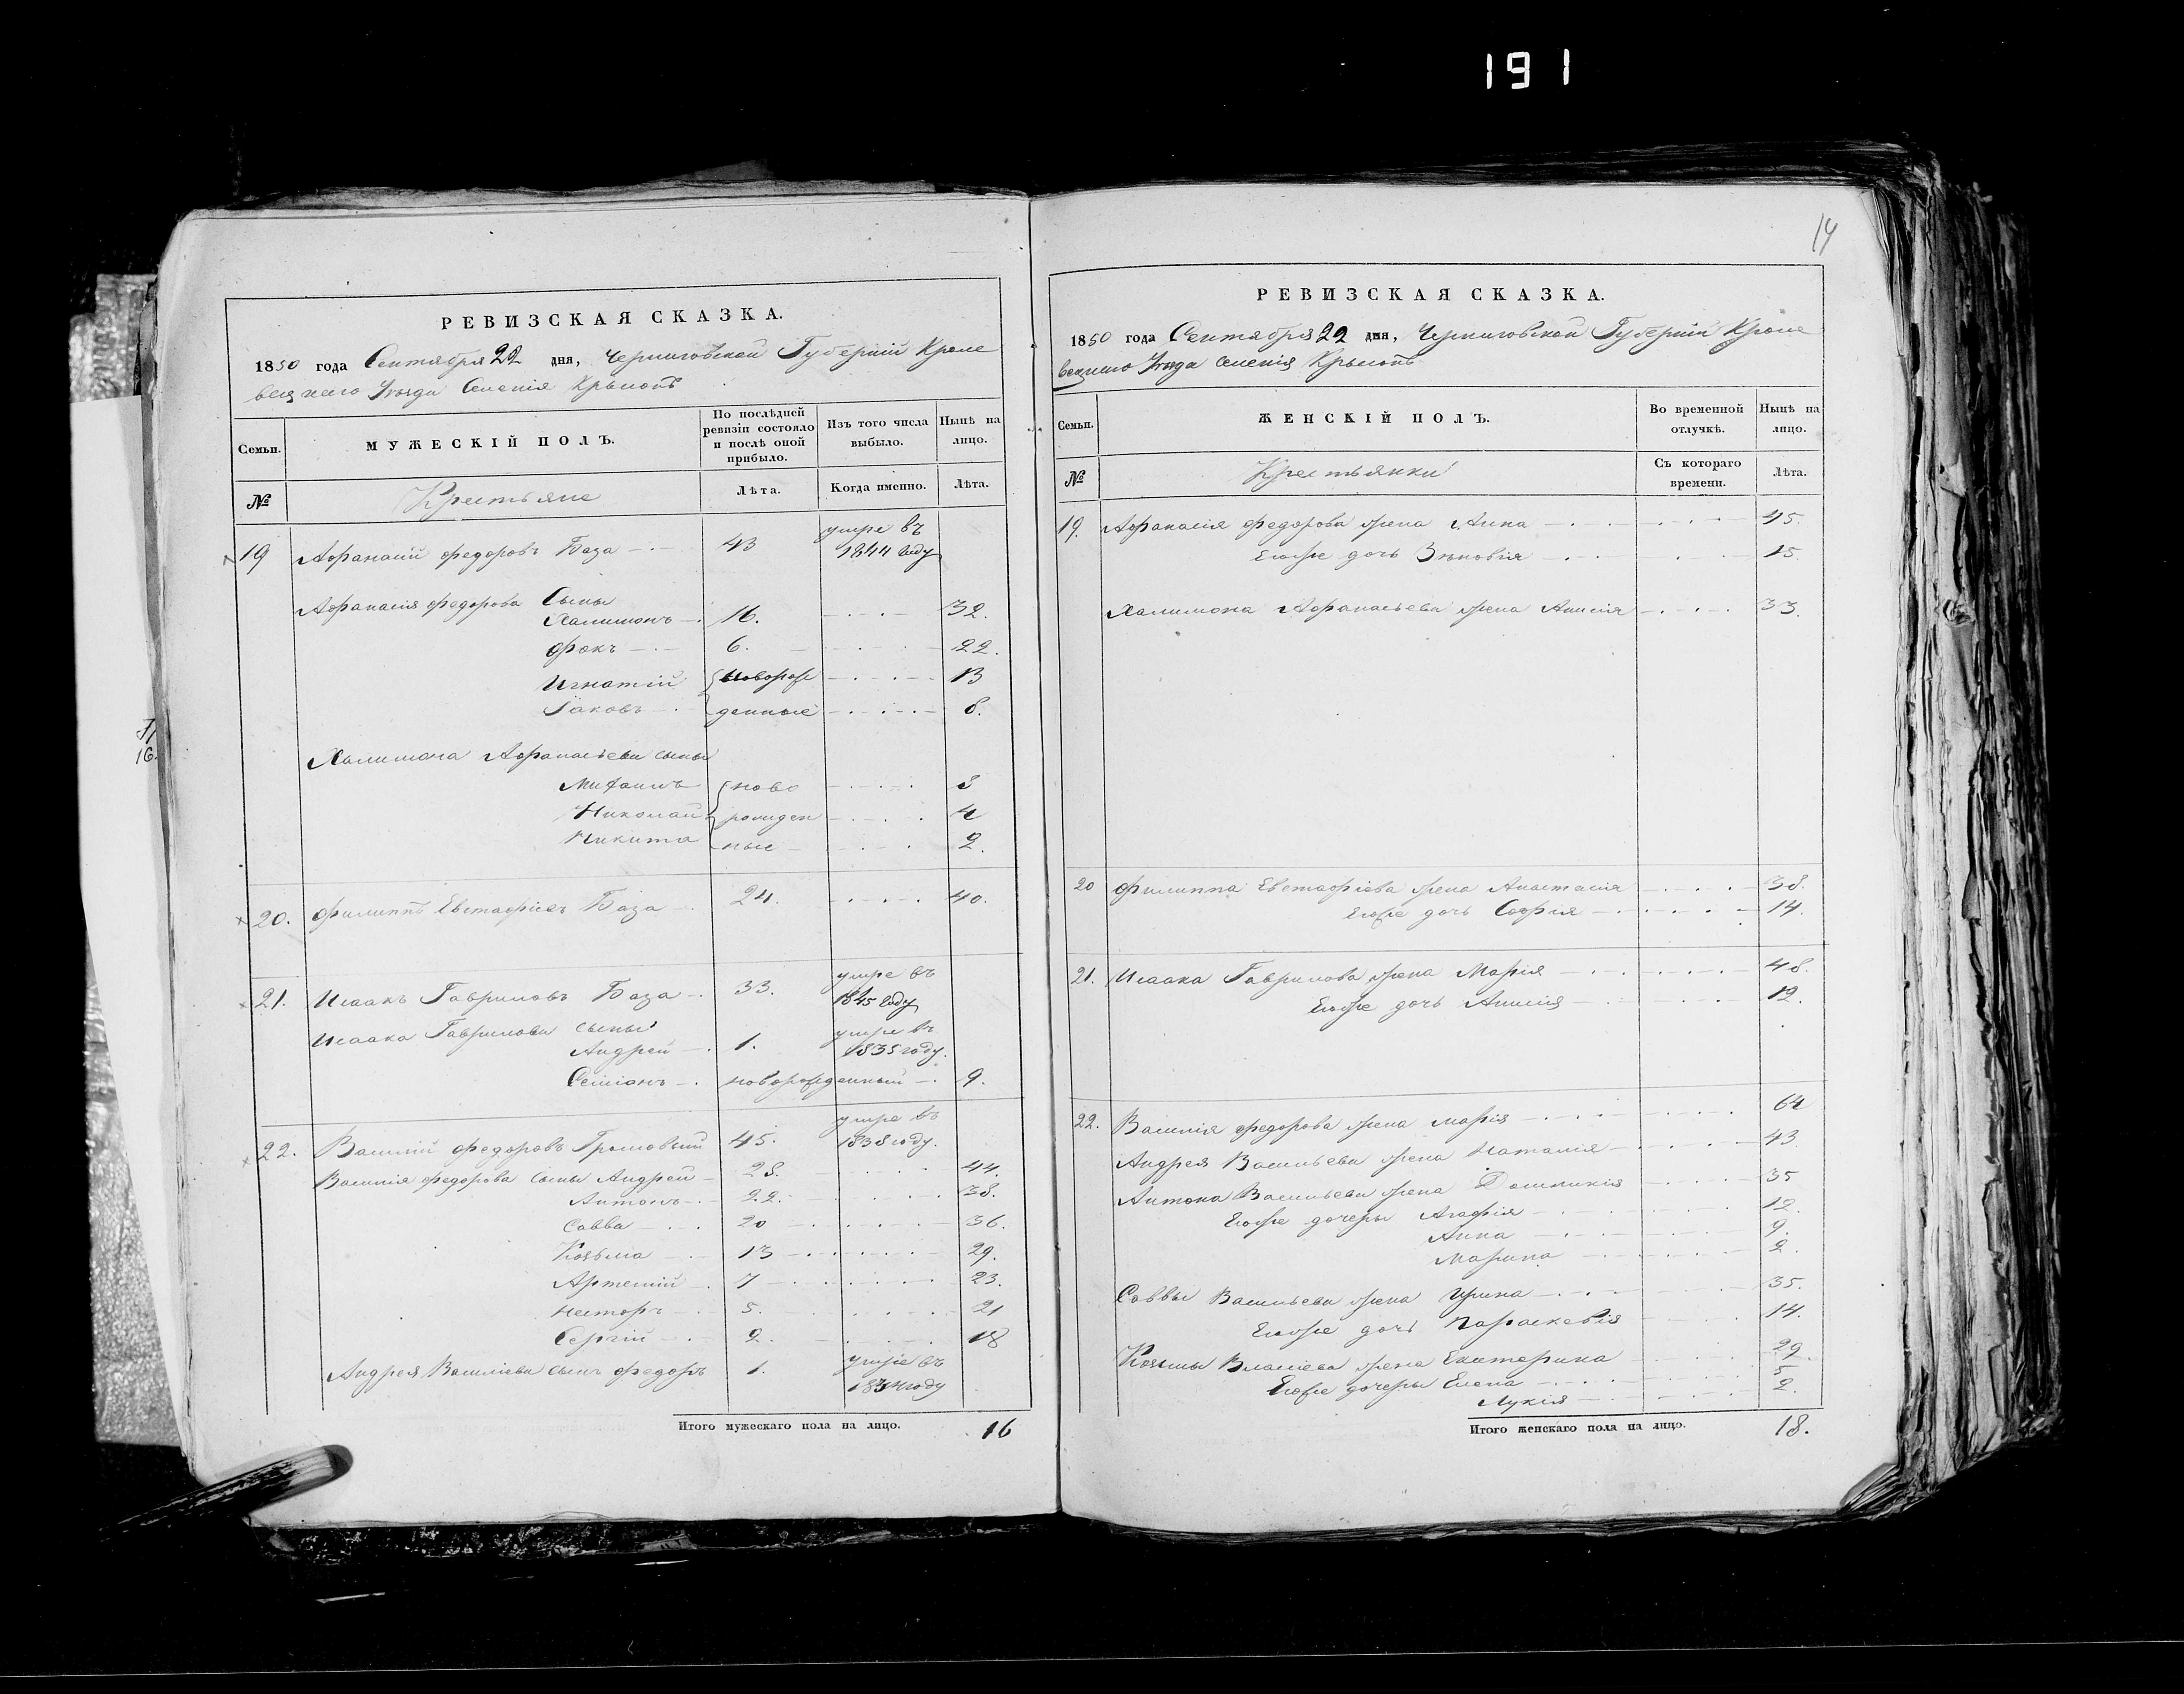 191
14
РЕВИЗСКАЯ СКАЗКА.
1850 года Сентября 22 дня, Черниговской Губерніи Кроле
вецкаго Уезда Селенія Крымопъ
Семьи.
МУЖЕСКІЙ ПОЛЪ.
По послѣдней ревизіи состояло и послѣ оной прибыло.
Изъ того числа выбыло.
Нынѣ на лицо.
№
Крестьяне
Лѣта.
Когда именно.
Лѣта.
19 Афанасій Федоровъ База 43 умре въ 1844 году
Афанасія Федорова Сыны
Халимонъ 16. 32.
Фокъ 6. 22.
Игнатій новорож 13
Іаковъ денные 8.
Халимона Афанасьева сыны
Михаилъ ново 8
Николай рожден 4
Никита ные 2.
20. Филиппъ Евстафіевъ База 24. 40.
21. Исаакъ Гавриловъ База 33. умре въ 1845 году
Исаака Гаврилова сыны
Андрей 1. умре въ 1835 году.
Семіонъ новорожденный 9.
22. Василій Федоровъ 45. умре въ 1838 году.
Василія Федорова сыны Андрей 28. 44.
Антонъ 22. 38.
Савва 20 36.
Козьма 13 29.
Артемій 7 23.
Несторъ 5. 21
Сергій 2. 18
Андрея Василіева сынъ Федоръ 1. умре въ 1834 году
Итого мужескаго пола на лицо. 16
РЕВИЗСКАЯ СКАЗКА.
1850 года Сентября 22 дня, Черниговской Губерніи Кроле
вецкаго Уезда Селенія Крымопъ
Семьи.
ЖЕНСКІЙ ПОЛЪ.
Во временной отлучкѣ.
Нынѣ на лицо.
№
Крестьянки
Съ котораго времени.
Лѣта.
19. Афанасія Федорова жена Анна 45.
Егоже дочь Зѣновія 15.
Халимона Афанасьева жена Анисія 33.
20 Филиппа Евстафіева жена Анастасія 38.
Егоже дочь Софія 14.
21. Исаака Гаврилова жена Марія 48.
Егоже дочь Анисія 12.
22. Василія Федорова жена Марія 64
Андрея Васильева жена Наталія 43
Антона Васильева жена Домникія 35
Егоже дочеры Агафія 12.
Анна 9.
Марина 2.
Саввы Васильева жена Ирина 35.
Егоже дочь Параскевія 14.
Козьмы Власіева жена Екатерина 29.
Егоже дочеры Елена 5
Лукія 2.
Итого женскаго пола на лицо. 18.